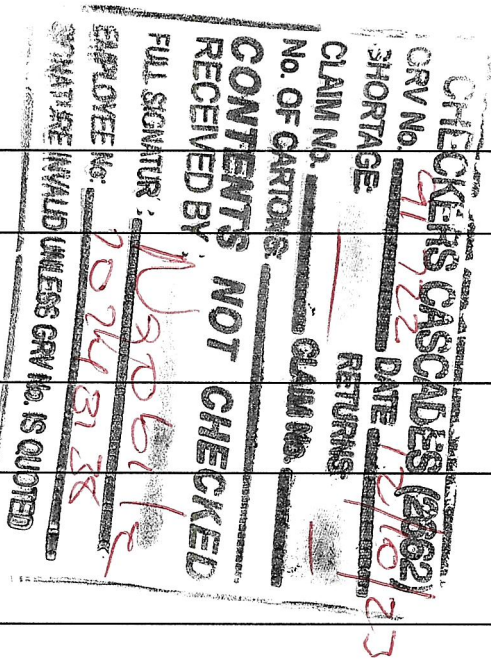 CHECKERS CASCADES (2062)
GRV No. 91722 DATE 12/10/23
SHORTAGE RETURNS
CLAIM No. — CLAIM No. —
No. OF CARTONS
CONTENTS NOT CHECKED
RECEIVED BY:
FULL SIGNATUR :
EMPLOYEE No.
SIGNATURE INVALID UNLESS GRV No. IS QUOTED